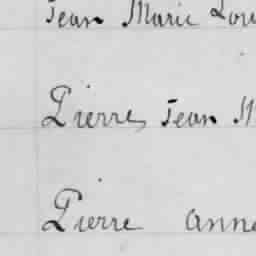 Jean Marie Lou
Pierre, Jean M
Pierre anne